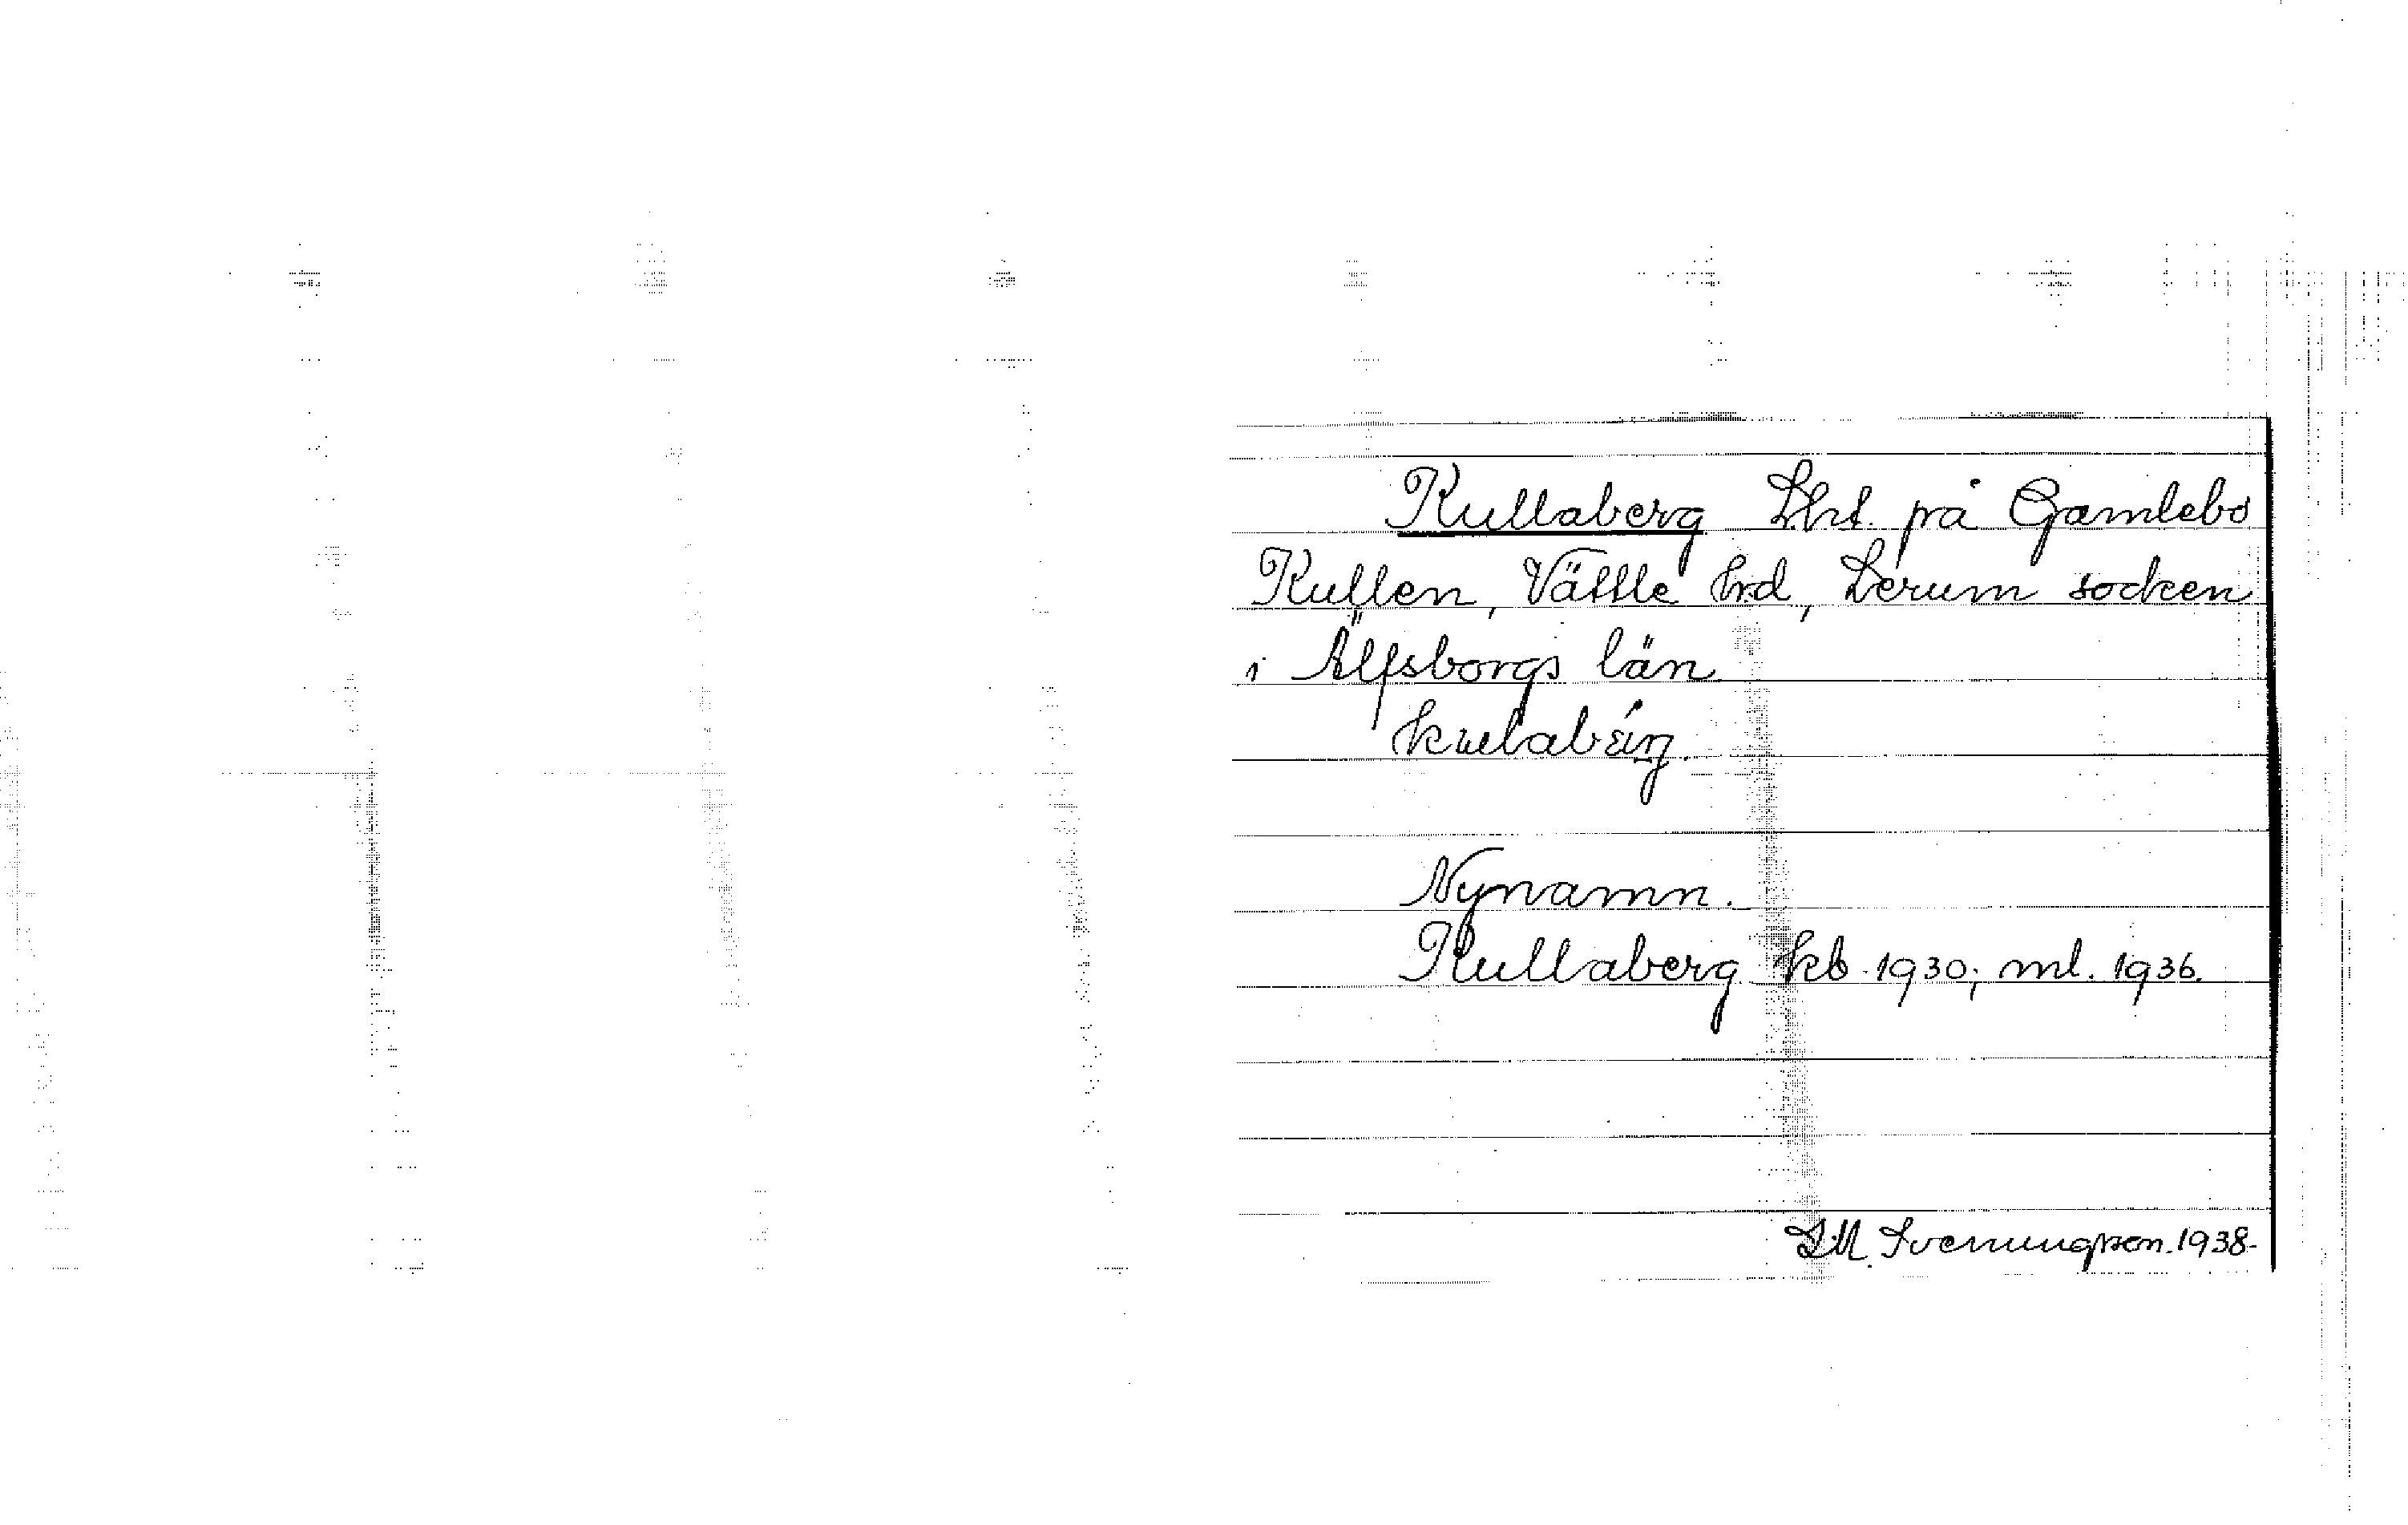 Kullaberg Lht. på Gamlebo
Kullen, Vättle hrd, Lerum socken
i Älfsborgs län
Nynamn.
Kullaberg kb 1930; ml. 1936.
LM. Svenungsson. 1938.